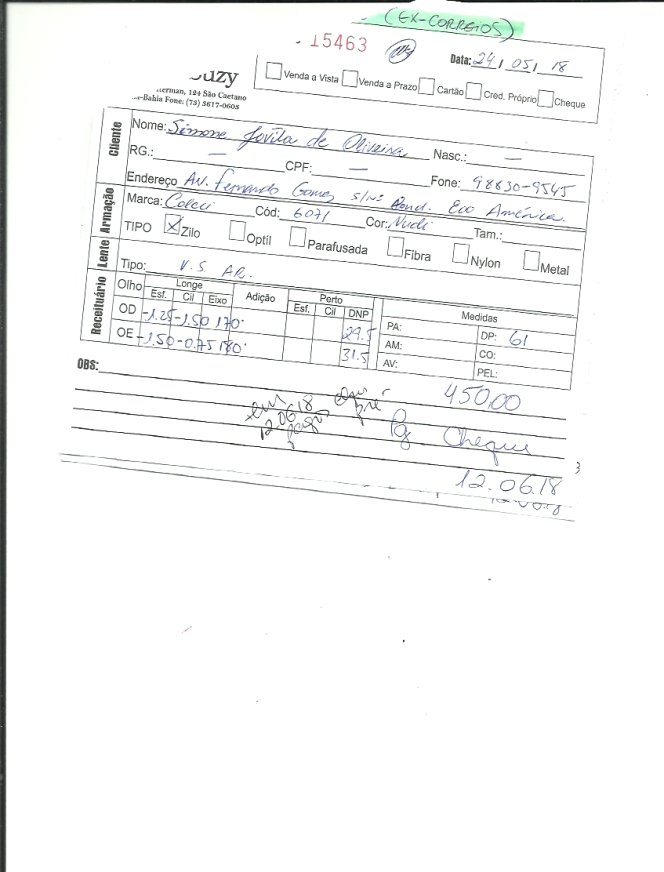 (EX-CORREIOS)
15463
Data: 24/05/18
uzy
erman, 124 São Caetano
-Bahia Fone: (73) 3617-0603
Venda a Vista Venda a Prazo Cartão Cred. Próprio Cheque
Cliente
Nome: Simone Jovita de Oliveira Nasc.: —
RG.: — CPF: — Fone: 98830-9545
Endereço Av. Fernando Gomes s/nº Cond. Eco América.
Armação
Marca: Colcci Cód: 6071 Cor: Nudi Tam.:
TIPO X Zilo Optíl Parafusada Fibra Nylon Metal
Lente
Tipo: V.S. AR.
Receituário
Olho Longe Adição Perto Medidas
Esf. Cil Eixo Esf. Cil DNP
OD -1.25 -1.50 170° 29.5 PA: DP: 61
OE -1.50 -0.75 180° 31.5 AM: CO:
AV: PEL:
OBS: 450,00
em 12.06.18 pagou
pré
Pg. Cheque
12.06.18